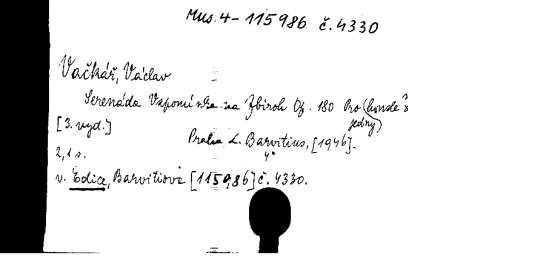 Mus. 4 - 115986 č. 4330
Vačkář, Václav
Serenáda Vzpomínka na Zbiroh Op. 180 Pro (housle
jedny)
[3. vyd.]
Praha L. Barvitius, [1946].
4°
2, 1 s.
v. Edice, Barvitiova [115986] č. 4330.